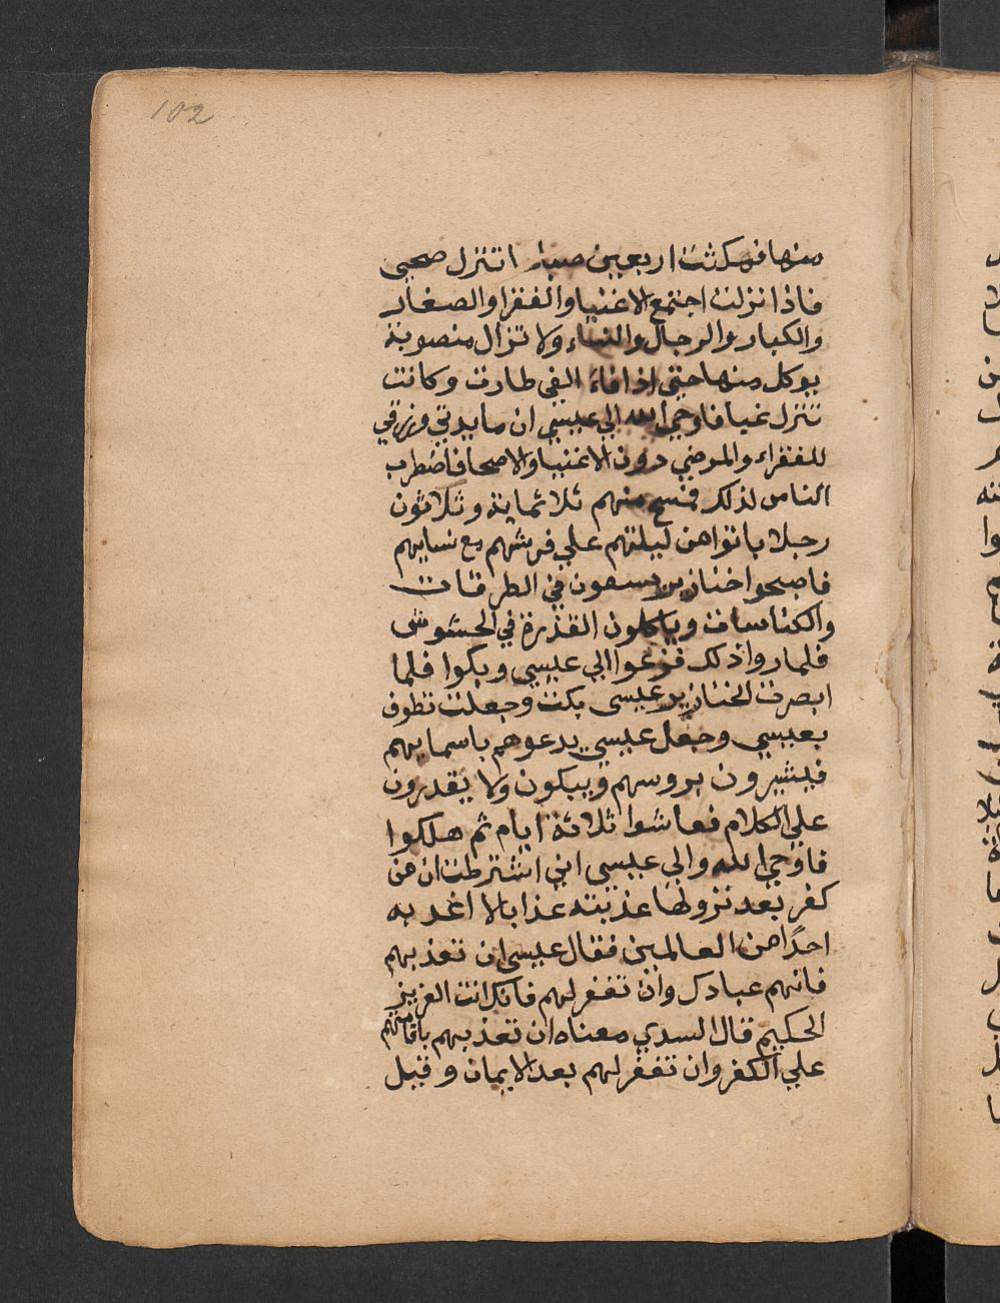 102
منها فمكثت اربعين صباحا تنزل ضحي
فاذا نزلت اجتمع الاغنيا والفقرا والصغار
والكبار والرجال والنساء ولا تزال منصوبة
يوكل منها حتي اذا فاء الفي طارت وكانت
تنزل غبا فاوحي الله الي عيسي ان مايدتي ورزقي
للفقراء والمرضي دون الاغنيا والاصحا فاضطرب
الناس لذلك فمسخ منهم ثلاثماية وثلاثون
رجلا باتوا من ليلتهم علي فرشهم مع نسايهم
فاصبحوا خنازير يسعون في الطرقات
والكناسات وياكلون القذرة في الحشوش
فلما راوا ذلك فزعوا الي عيسي وبكوا فلما
ابصرت الخنازير عيسي بكت وجعلت تطوف
بعيسي وجعل عيسي يدعوهم باسمايهم
فيشيرون بروسهم ويبكون ولا يقدرون
علي الكلام فعاشوا ثلاثة ايام ثم هلكوا
فاوحي الله والي عيسي اني اشترطت ان من
كفر بعد نزولها عذبته عذابا لا اعذبه
احدًا من العالمين فقال عيسي ان تعذبهم
فانهم عبادك وان تغفر لهم فانك انت العزيز
الحكيم قال السدي معناه ان تعذبهم باقامتهم
علي الكفر وان تغفر لهم بعد الايمان وقيل